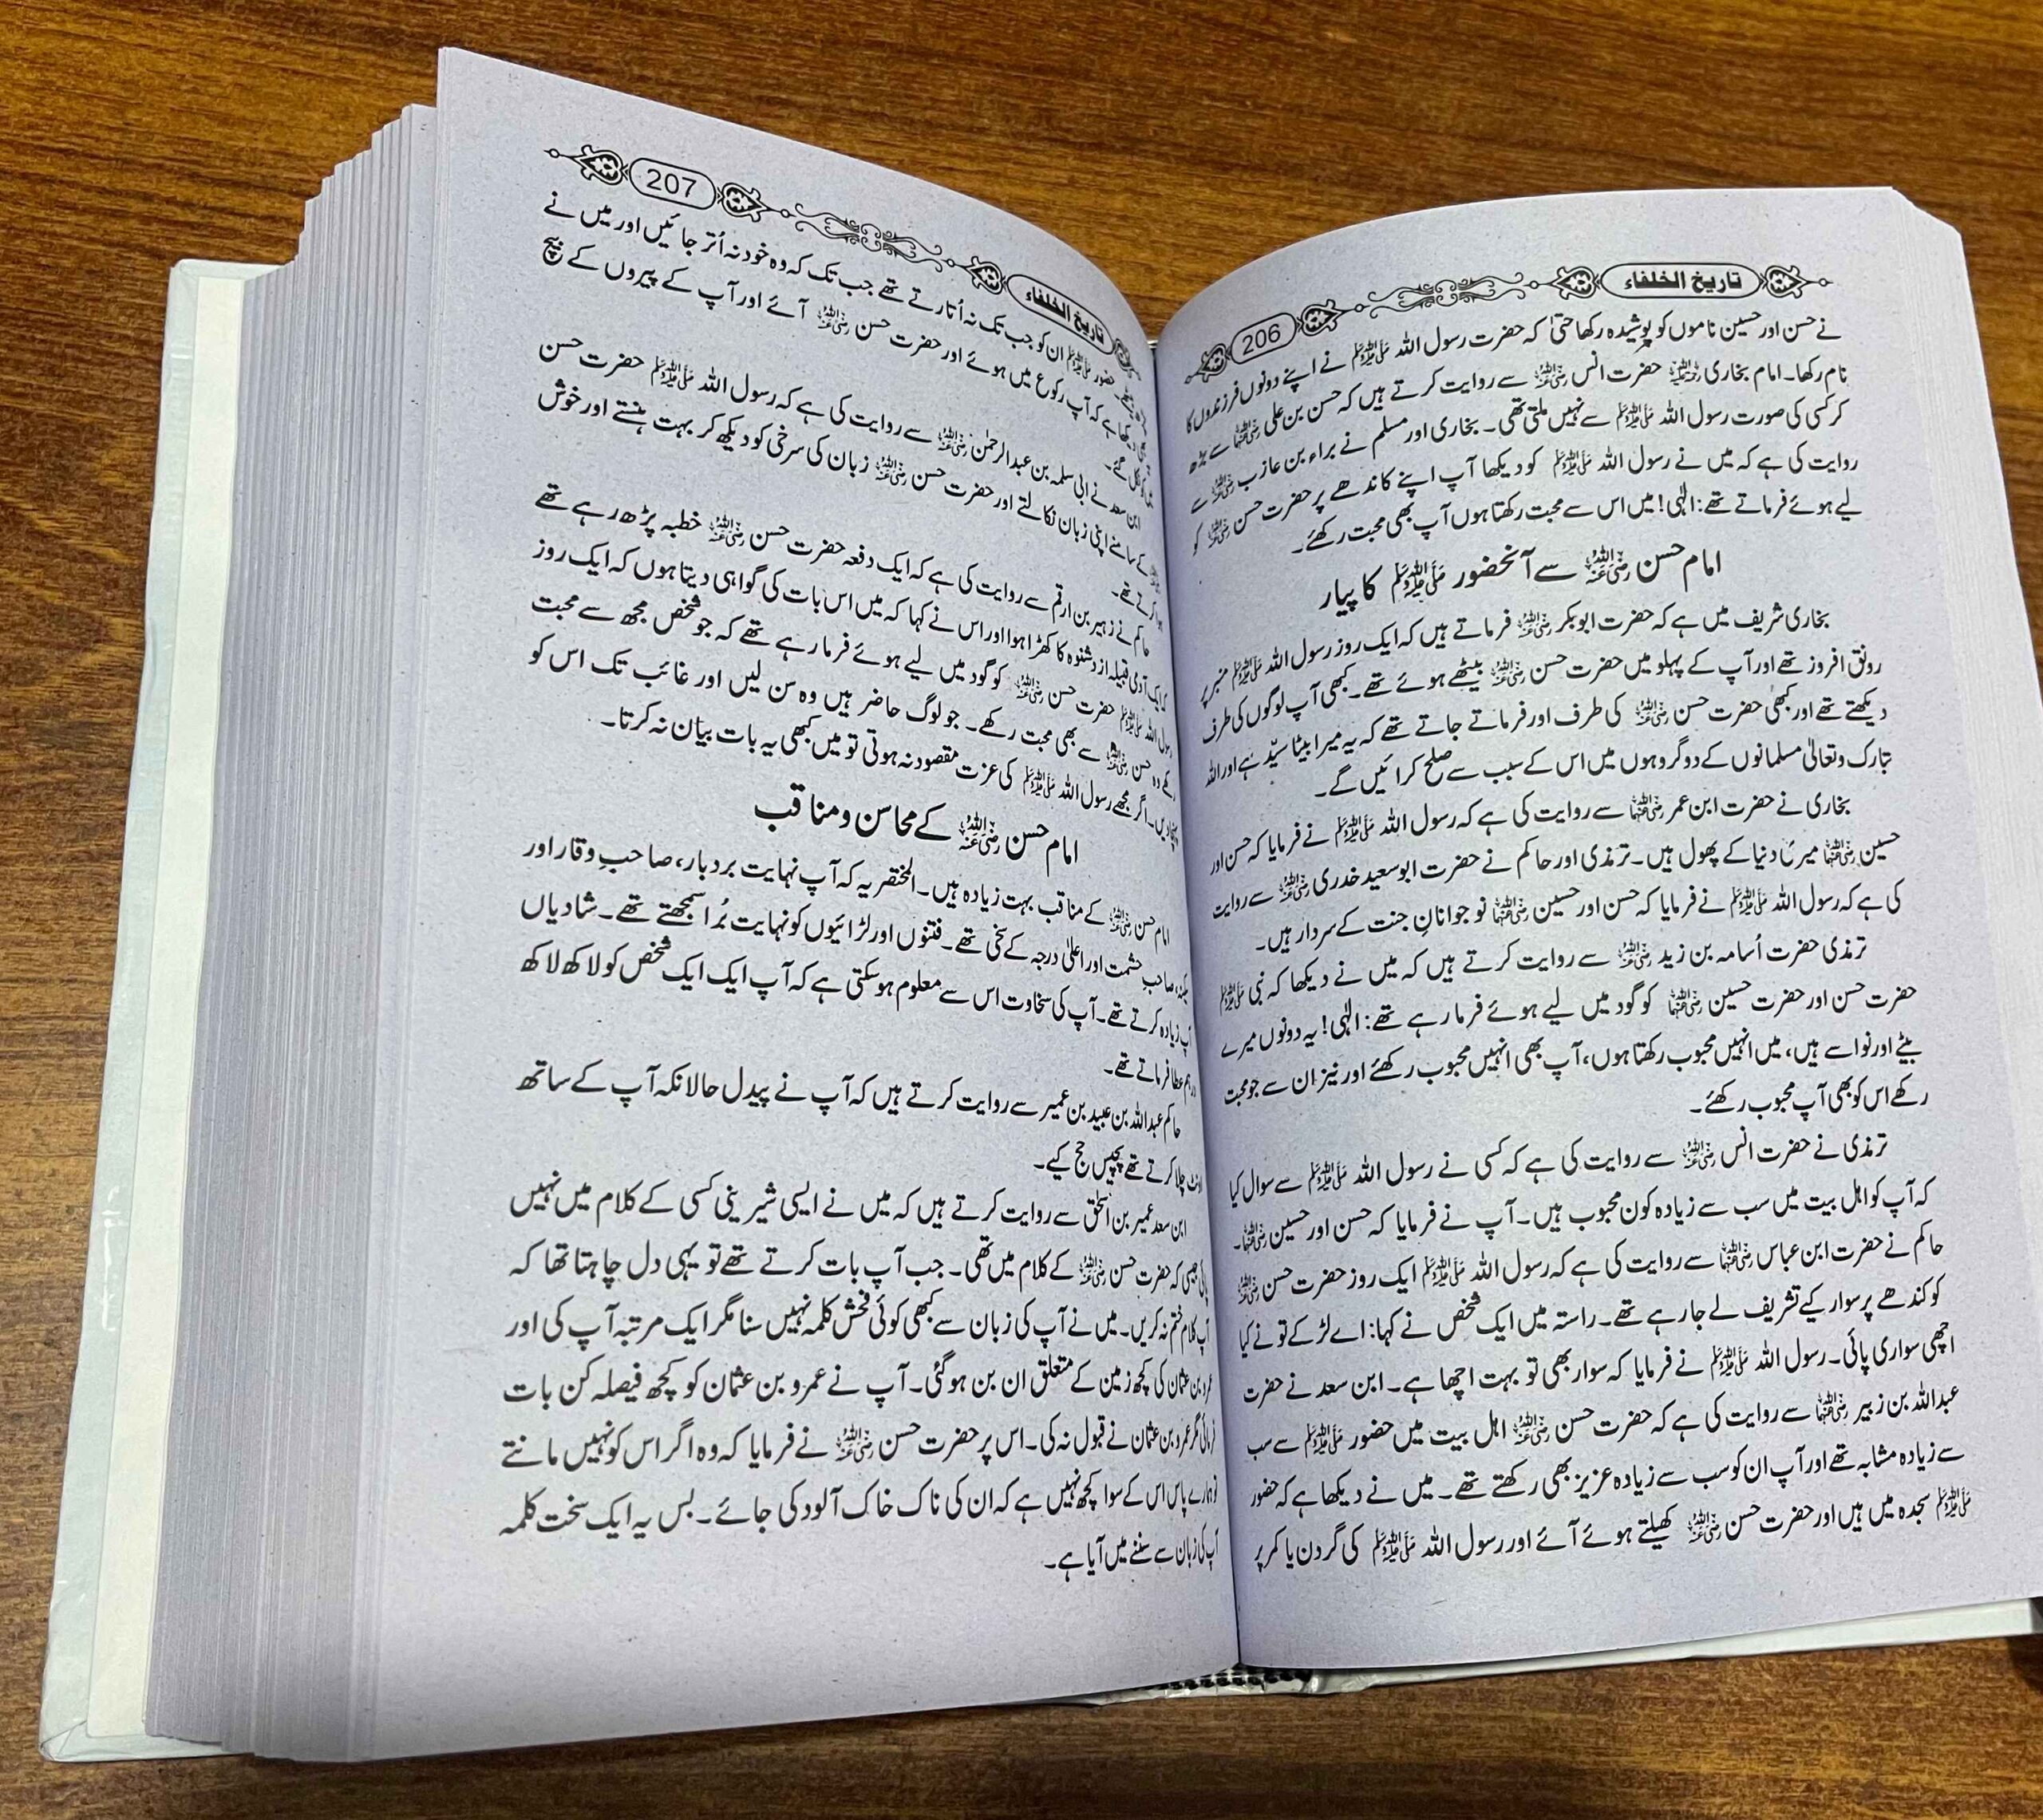 تاریخ الخلفاء 206
نے حسن اور حسین ناموں کو پوشیدہ رکھا حتیٰ کہ حضرت رسول اللہ ﷺ نے اپنے دونوں فرزندوں کا
نام رکھا۔ امام بخاری رحمۃ اللہ علیہ حضرت انس رضی اللہ عنہ سے روایت کرتے ہیں کہ حسن بن علی رضی اللہ عنہما سے بڑھ
کر کسی کی صورت رسول اللہ ﷺ سے نہیں ملتی تھی۔ بخاری اور مسلم نے براء بن عازب رضی اللہ عنہ سے
روایت کی ہے کہ میں نے رسول اللہ ﷺ کو دیکھا آپ اپنے کاندھے پر حضرت حسن رضی اللہ عنہ کو
لیے ہوئے فرماتے تھے: الٰہی! میں اس سے محبت رکھتا ہوں آپ بھی محبت رکھئے۔
امام حسن رضی اللہ عنہ سے آنحضور ﷺ کا پیار
بخاری شریف میں ہے کہ حضرت ابوبکر رضی اللہ عنہ فرماتے ہیں کہ ایک روز رسول اللہ ﷺ منبر پر
رونق افروز تھے اور آپ کے پہلو میں حضرت حسن رضی اللہ عنہ بیٹھے ہوئے تھے۔ کبھی آپ لوگوں کی طرف
دیکھتے تھے اور کبھی حضرت حسن رضی اللہ عنہ کی طرف اور فرماتے جاتے تھے کہ یہ میرا بیٹا سیّد ہے اور اللہ
تبارک وتعالیٰ مسلمانوں کے دو گروہوں میں اس کے سبب سے صلح کرائیں گے۔
بخاری نے حضرت ابن عمر رضی اللہ عنہما سے روایت کی ہے کہ رسول اللہ ﷺ نے فرمایا کہ حسن اور
حسین رضی اللہ عنہما میری دنیا کے پھول ہیں۔ ترمذی اور حاکم نے حضرت ابوسعید خدری رضی اللہ عنہ سے روایت
کی ہے کہ رسول اللہ ﷺ نے فرمایا کہ حسن اور حسین رضی اللہ عنہما نوجوانانِ جنت کے سردار ہیں۔
ترمذی حضرت اُسامہ بن زید رضی اللہ عنہ سے روایت کرتے ہیں کہ میں نے دیکھا کہ نبی ﷺ
حضرت حسن اور حضرت حسین رضی اللہ عنہما کو گود میں لیے ہوئے فرما رہے تھے: الٰہی! یہ دونوں میرے
بیٹے اور نواسے ہیں، میں انہیں محبوب رکھتا ہوں، آپ بھی انہیں محبوب رکھئے اور نیز ان سے جو محبت
رکھے اس کو بھی آپ محبوب رکھئے۔
ترمذی نے حضرت انس رضی اللہ عنہ سے روایت کی ہے کہ کسی نے رسول اللہ ﷺ سے سوال کیا
کہ آپ کو اہل بیت میں سب سے زیادہ کون محبوب ہیں۔ آپ نے فرمایا کہ حسن اور حسین رضی اللہ عنہما۔
حاکم نے حضرت ابن عباس رضی اللہ عنہما سے روایت کی ہے کہ رسول اللہ ﷺ ایک روز حضرت حسن رضی اللہ عنہ
کو کندھے پر سوار کیے تشریف لے جا رہے تھے۔ راستہ میں ایک شخص نے کہا: اے لڑکے تو نے کیا
اچھی سواری پائی۔ رسول اللہ ﷺ نے فرمایا کہ سوار بھی تو بہت اچھا ہے۔ ابن سعد نے حضرت
عبداللہ بن زبیر رضی اللہ عنہما سے روایت کی ہے کہ حضرت حسن رضی اللہ عنہ اہل بیت میں حضور ﷺ سے سب
سے زیادہ مشابہ تھے اور آپ ان کو سب سے زیادہ عزیز بھی رکھتے تھے۔ میں نے دیکھا ہے کہ حضور
ﷺ سجدہ میں ہیں اور حضرت حسن رضی اللہ عنہ کھیلتے ہوئے آئے اور رسول اللہ ﷺ کی گردن یا کمر پر
تاریخ الخلفاء 207
حضور ﷺ ان کو جب تک نہ اُتارتے تھے جب تک کہ وہ خود نہ اُتر جائیں اور میں نے
دیکھا ہے کہ آپ رکوع میں ہوئے اور حضرت حسن رضی اللہ عنہ آئے اور آپ کے پیروں کے بیچ
نکل گئے۔
ابن سعد نے ابی سلمہ بن عبدالرحمٰن رضی اللہ عنہ سے روایت کی ہے کہ رسول اللہ ﷺ حضرت حسن
کے سامنے اپنی زبان نکالتے اور حضرت حسن رضی اللہ عنہ زبان کی سرخی کو دیکھ کر بہت ہنستے اور خوش
کرتے تھے۔
حاکم نے زہیر بن ارقم سے روایت کی ہے کہ ایک دفعہ حضرت حسن رضی اللہ عنہ خطبہ پڑھ رہے تھے
کہ ایک آدمی قبیلہ ازدشنوہ کا کھڑا ہوا اور اس نے کہا کہ میں اس بات کی گواہی دیتا ہوں کہ ایک روز
رسول اللہ ﷺ حضرت حسن رضی اللہ عنہ کو گود میں لیے ہوئے فرما رہے تھے کہ جو شخص مجھ سے محبت
رکھے وہ حسن رضی اللہ عنہ سے بھی محبت رکھے۔ جو لوگ حاضر ہیں وہ سن لیں اور غائب تک اس کو
پہنچا دیں۔ اگر مجھے رسول اللہ ﷺ کی عزت مقصود نہ ہوتی تو میں کبھی یہ بات بیان نہ کرتا۔
امام حسن رضی اللہ عنہ کے محاسن و مناقب
امام حسن رضی اللہ عنہ کے مناقب بہت زیادہ ہیں۔ المختصر یہ کہ آپ نہایت بردبار، صاحبِ وقار اور
صاحبِ حشمت اور اعلیٰ درجہ کے سخی تھے۔ فتنوں اور لڑائیوں کو نہایت بُرا سمجھتے تھے۔ شادیاں
آپ زیادہ کرتے تھے۔ آپ کی سخاوت اس سے معلوم ہو سکتی ہے کہ آپ ایک ایک شخص کو لاکھ لاکھ
درہم عطا فرماتے تھے۔
حاکم عبداللہ بن عبید بن عمیر سے روایت کرتے ہیں کہ آپ نے پیدل حالانکہ آپ کے ساتھ
اونٹ چلا کرتے تھے پچیس حج کیے۔
ابن سعد عمیر بن اسحٰق سے روایت کرتے ہیں کہ میں نے ایسی شیرینی کسی کے کلام میں نہیں
پائی جیسی کہ حضرت حسن رضی اللہ عنہ کے کلام میں تھی۔ جب آپ بات کرتے تھے تو یہی دل چاہتا تھا کہ
آپ کلام ختم نہ کریں۔ میں نے آپ کی زبان سے کبھی کوئی فحش کلمہ نہیں سنا مگر ایک مرتبہ آپ کی اور
عمرو بن عثمان کی کچھ زمین کے متعلق ان بن ہو گئی۔ آپ نے عمرو بن عثمان کو کچھ فیصلہ کن بات
فرمائی مگر عمرو بن عثمان نے قبول نہ کی۔ اس پر حضرت حسن رضی اللہ عنہ نے فرمایا کہ وہ اگر اس کو نہیں مانتے
تو ہمارے پاس اس کے سوا کچھ نہیں ہے کہ ان کی ناک خاک آلود کی جائے۔ بس یہ ایک سخت کلمہ
آپ کی زبان سے سننے میں آیا ہے۔